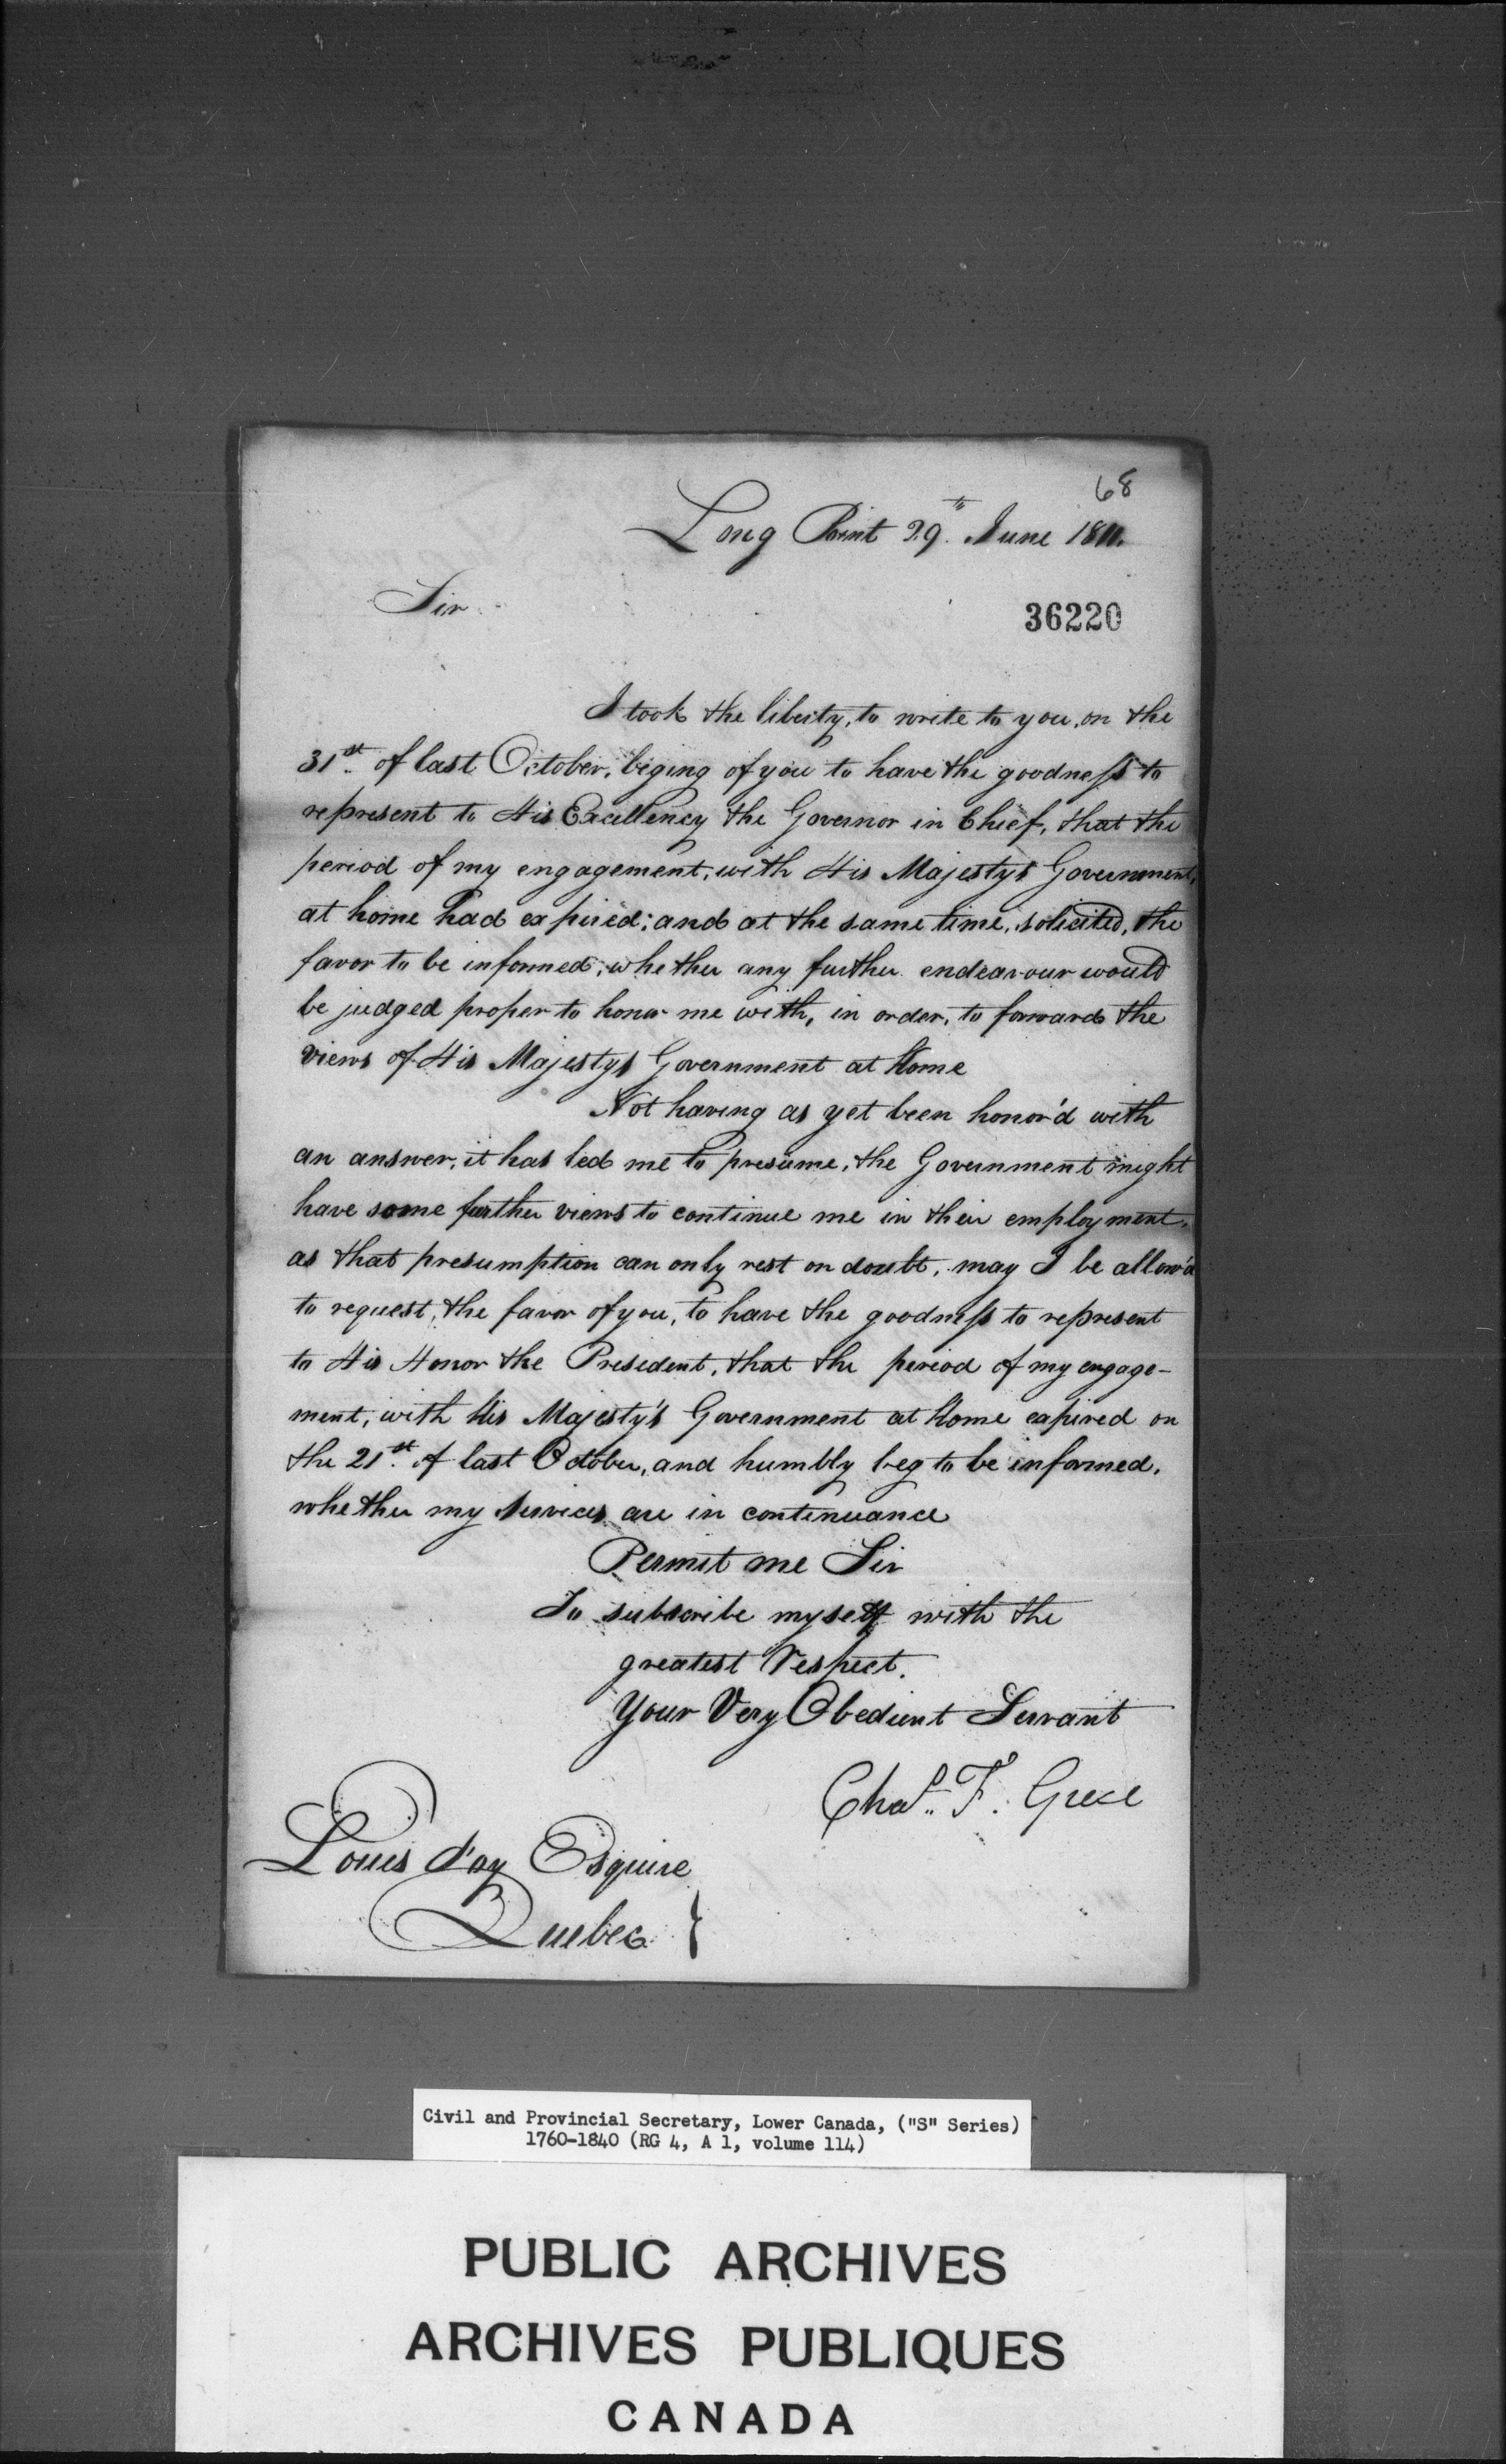 68
Long Point 29th June 1811.
Sir
36220
I took the liberty, to write to you, on the
31st. of last October, beging of you to have the goodness to
represent to His Excellency the Governor in Chief, that the
period of my engagement, with His Majestys Government,
at home had expired; and at the same time, solicited, the
favor to be informed, whether any further endeavour would
be judged proper to honor me with, in order, to forward the
views of His Majestys Government at Home
Not having as yet been honor'd with
an answer, it has led me to presume, the Government might
have some further views to continue me in their employment,
as that presumption can only rest on doubt, may I be allow'd
to request, the favor of you, to have the goodness to represent
to His Honor the President, that the period of my engage-
ment, with His Majesty's Government at Home expired on
the 21st. of last October, and humbly beg to be informed,
whether my services are in continuance
Permit me Sir
To subscribe myself with the
greatest Respect.
Your Very Obedient Servant
Chas. F. Grece
Louis Foy Esquire
Quebec }
Civil and Provincial Secretary, Lower Canada, ("S" Series)
1760-1840 (RG 4, A 1, volume 114)
PUBLIC ARCHIVES
ARCHIVES PUBLIQUES
CANADA